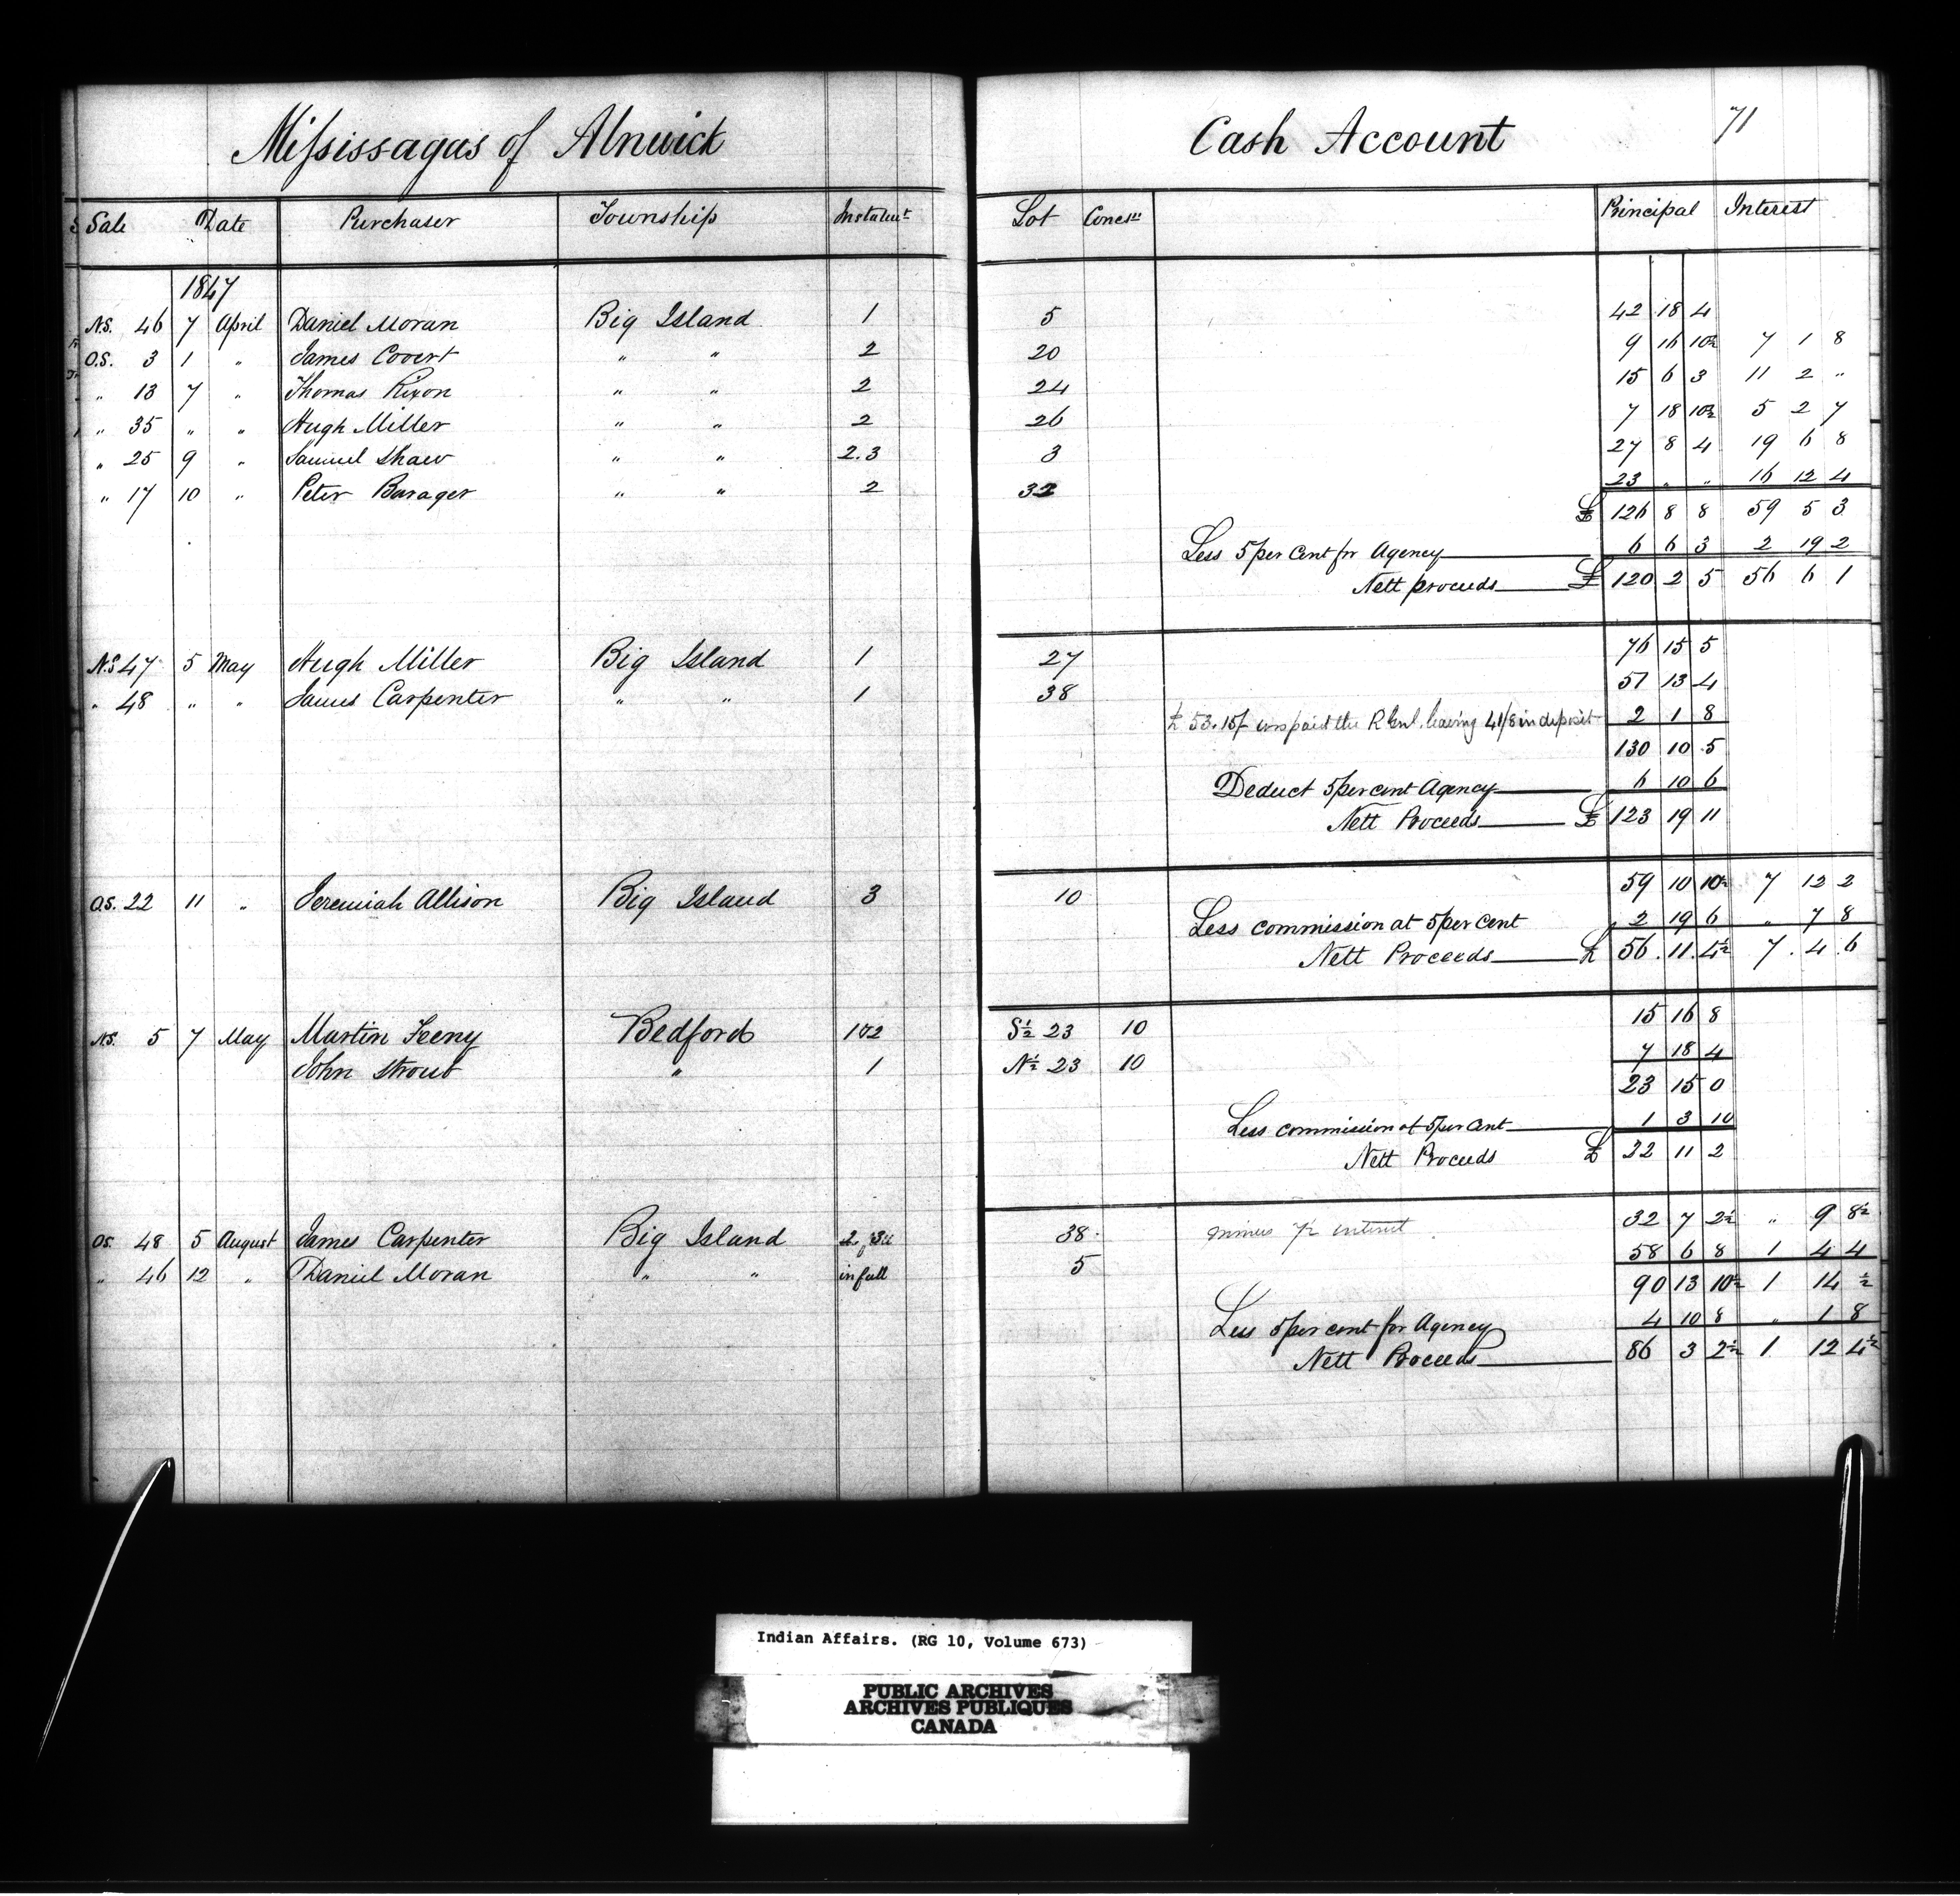 Mississagas of Alnwick Cash Account 71
Sale Date Purchaser Township Instalmt Lot Concesn Principal Interest
1847
N.S. 46 7 April Daniel Moran Big Island 1 5 42 18 4
O.S. 3 1 " James Covert " " 2 20 9 16 10½ 7 1 8
" 13 7 " Thomas Rixon " " 2 24 15 6 3 11 2 "
" 35 " " Hugh Miller " " 2 26 7 18 10½ 5 2 7
" 25 9 " Samuel Shaw " " 2.3 3 27 8 4 19 6 8
" 17 10 " Peter Barager " " 2 32 23 " " 16 12 4
£ 126 8 8 59 5 3
Less 5 per Cent for Agency 6 6 3 2 19 2
Nett proceeds £ 120 2 5 56 6 1
N.S 47 5 May Hugh Miller Big Island 1 27 76 15 5
" 48 " " James Carpenter " " 1 38 51 13 4
£ 53.15/ was paid the R Genl. leaving 41/8 in deposit 2 1 8
130 10 5
Deduct 5 per cent Agency 6 10 6
Nett Proceeds £ 123 19 11
O.S. 22 11 " Jeremiah Allison Big Island 3 10 59 10 10½ 7 12 2
Less commission at 5 per cent 2 19 6 " 7 8
Nett Proceeds £ 56.11.4½ 7.4.6
N.S. 5 7 May Martin Feeny Bedford 1&2 S½ 23 10 15 16 8
John Stroub " 1 N½ 23 10 7 18 4
23 15 0
Less commission at 5 per cent 1 3 10
Nett Proceeds £ 22 11 2
O.S. 48 5 August James Carpenter Big Island 2, 3d 38 minus 7½ interest 32 7 2½ " 9 8½
" 46 12 " Daniel Moran " " in full 5 58 6 8 1 4 4
90 13 10½ 1 14 ½
Less 5 per cent for Agency 4 10 8 " 1 8
Nett Proceeds 86 3 2½ 1 12 4½
Indian Affairs. (RG 10, Volume 673)
PUBLIC ARCHIVES
ARCHIVES PUBLIQUES
CANADA